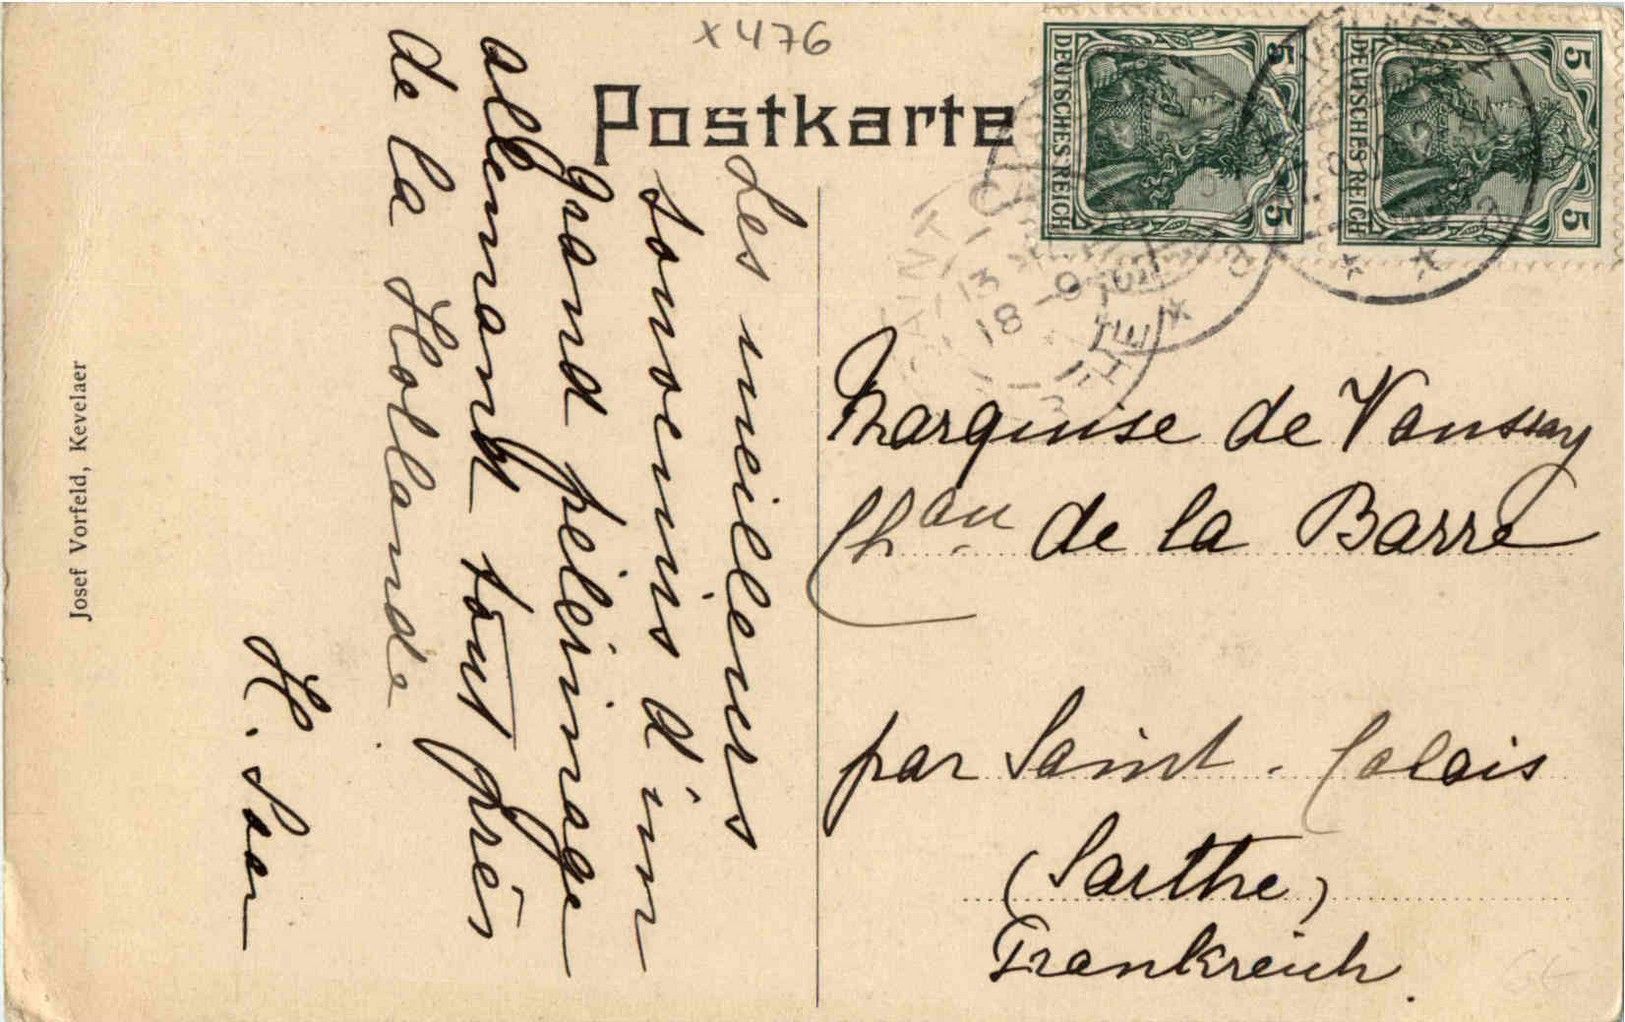 x 476
Postkarte
5 5
DEUTSCHES REICH
5 5
DEUTSCHES REICH
SAINT CALAIS
13
18 -9
SARTHE
Les meilleurs
souvenirs d'un
grand pèlerinage
allemand tout près
de la Hollande
H.
Marquise de Vanssay
Chau de la Barre
par Saint-Calais
(Sarthe)
Frankreich.
Josef Vorfeld, Kevelaer